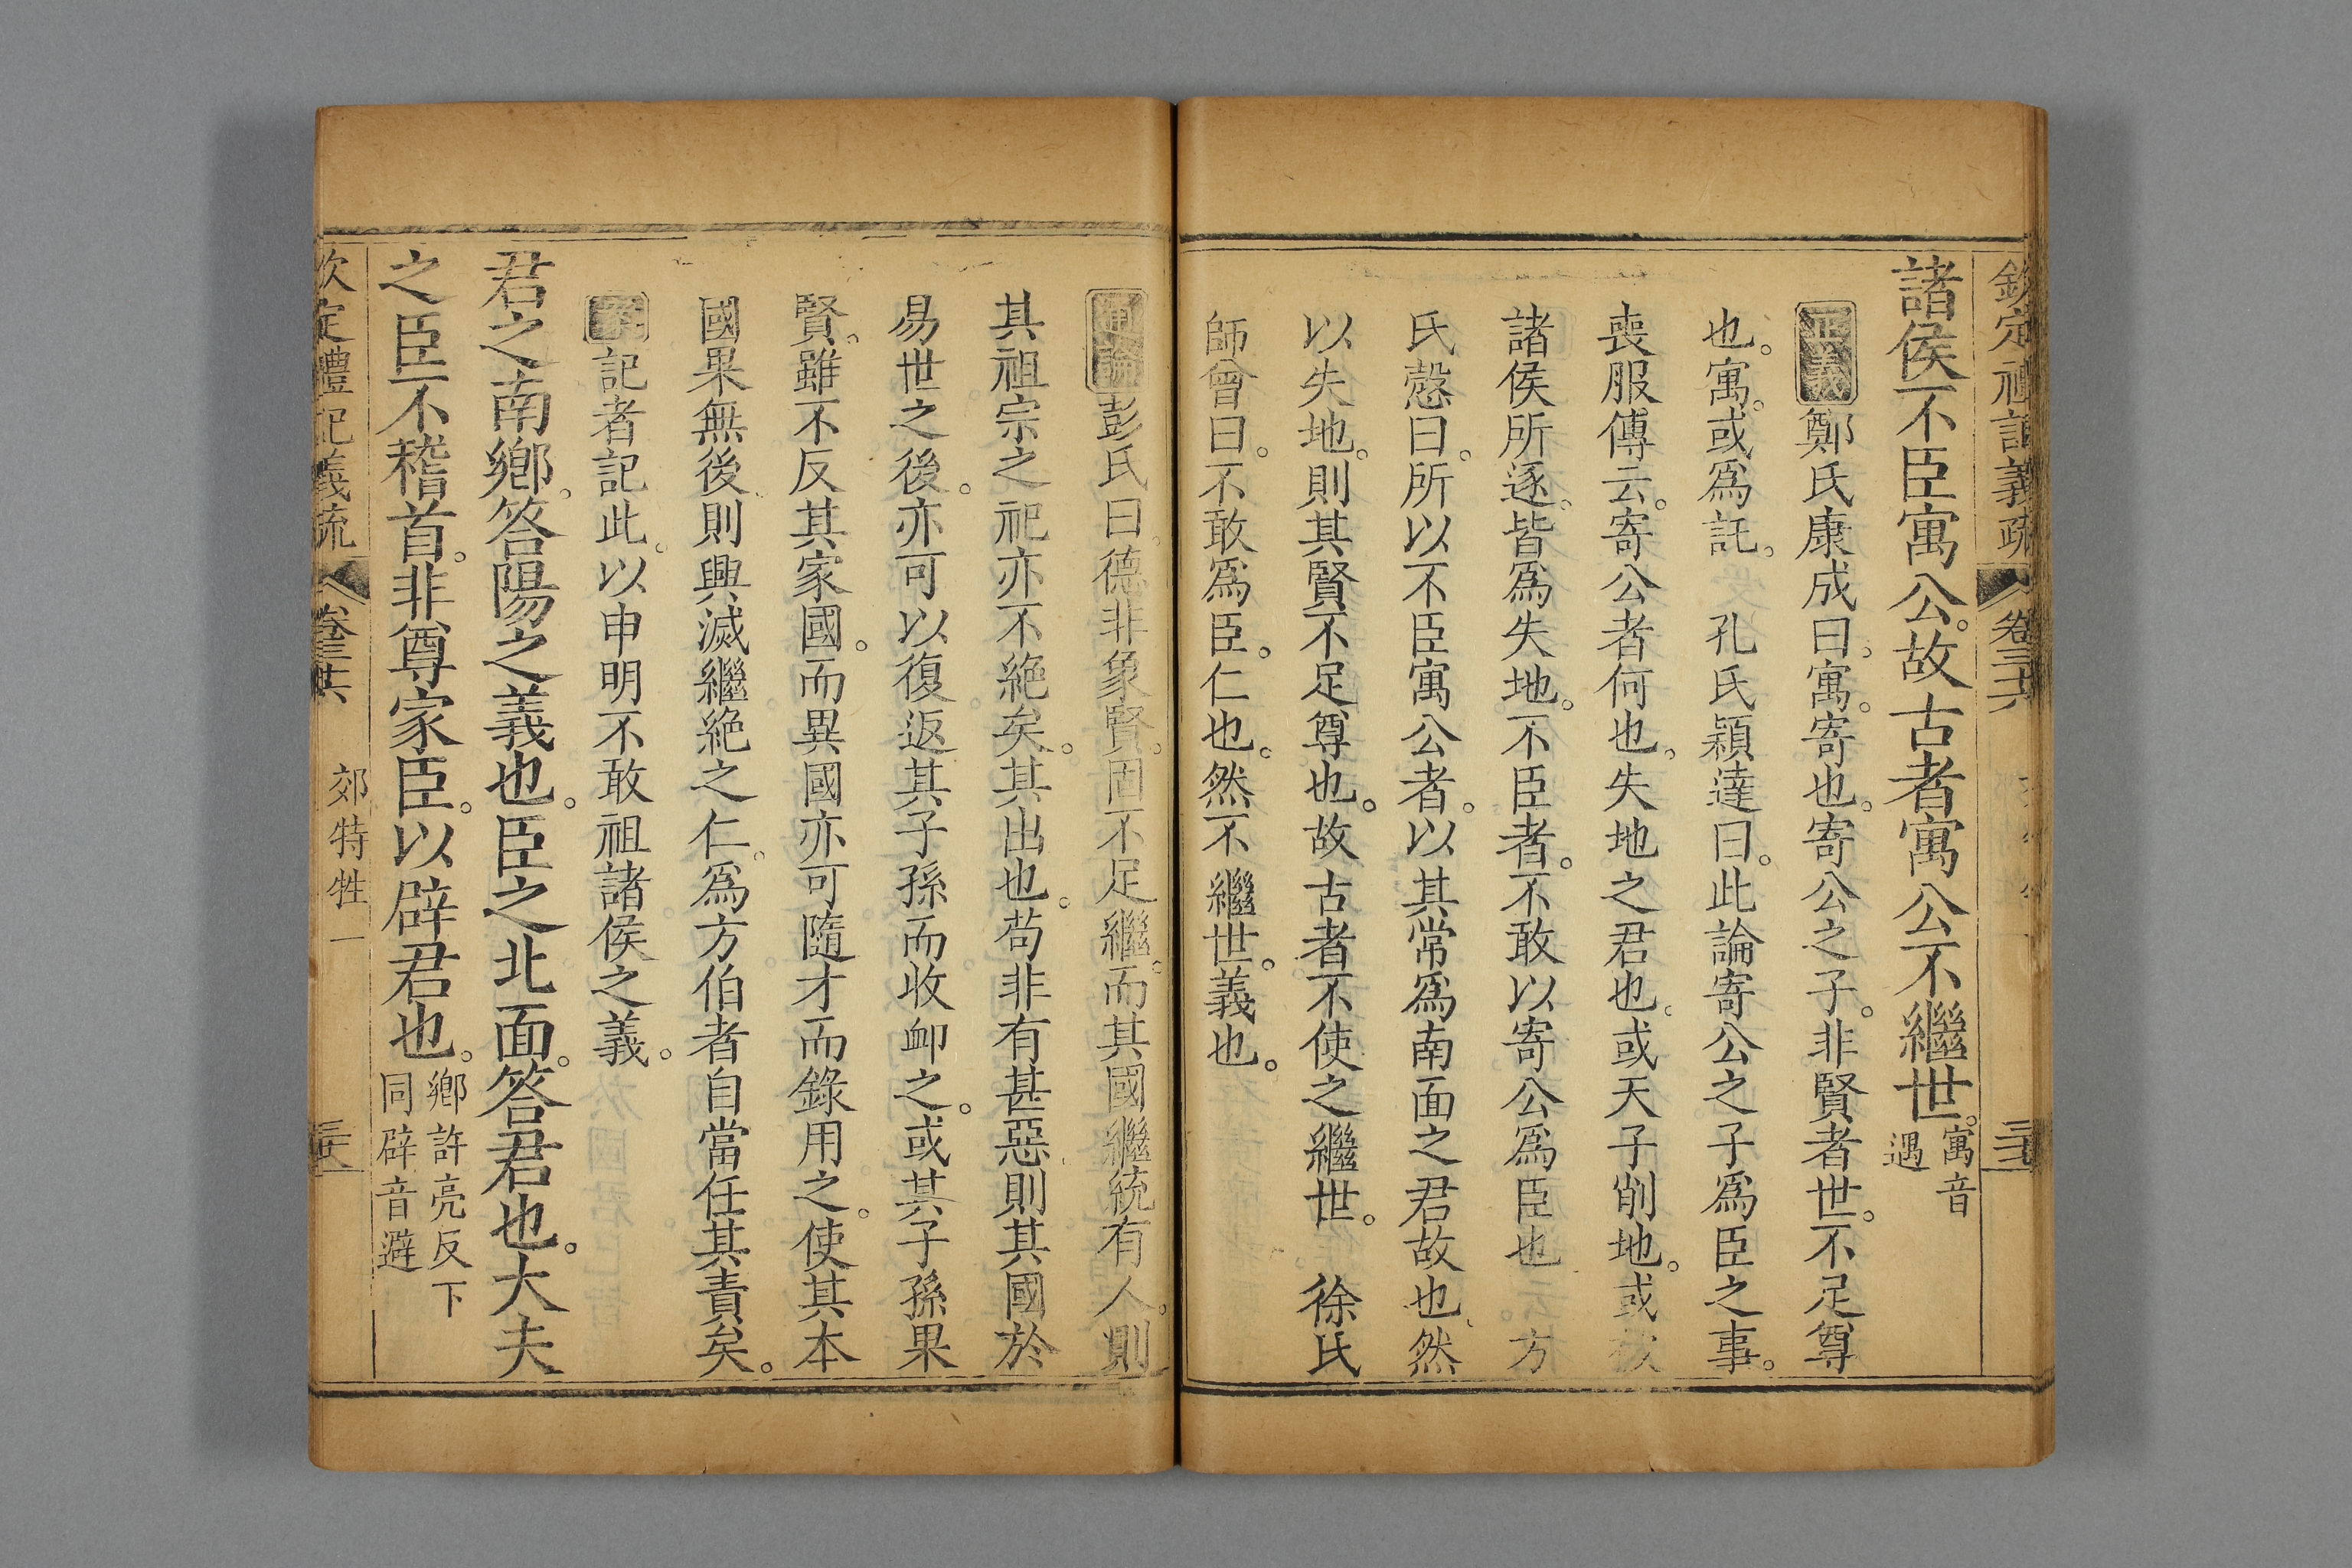 欽定禮記義疏 卷三十六
諸侯不臣寓公。故古者寓公不繼世。寓音遇
正義鄭氏康成曰。寓。寄也。寄公之子。非賢者世。不足尊
也。寓。或爲託。 孔氏穎達曰。此論寄公之子爲臣之事。
喪服傳云。寄公者何也。失地之君也。或天子削地。或被
諸侯所逐。皆爲失地。不臣者。不敢以寄公爲臣也 方
氏慤曰。所以不臣寓公者。以其常爲南面之君故也、然
以失地。則其賢不足尊也。故古者不使之繼世。 徐氏
師曾曰。不敢爲臣。仁也。然不繼世。義也。
通論彭氏曰。德非象賢。固不足繼。而其國繼統有人。則
其祖宗之祀亦不絶矣。其出也。苟非有甚惡、則其國於
易世之後。亦可以復返其子孫而收卹之。或其子孫果
賢。雖不反其家國。而異國亦可隨才而錄用之。使其本
國果無後則興滅繼絶之仁。爲方伯者自當任其責矣。
案記者記此。以申明不敢祖諸侯之義。
君之南鄉。答陽之義也。臣之北面。答君也。大夫
之臣不稽首。非尊家臣。以辟君也。鄉許亮反下同辟音避
欽定禮記義疏 卷三十六 郊特牲一